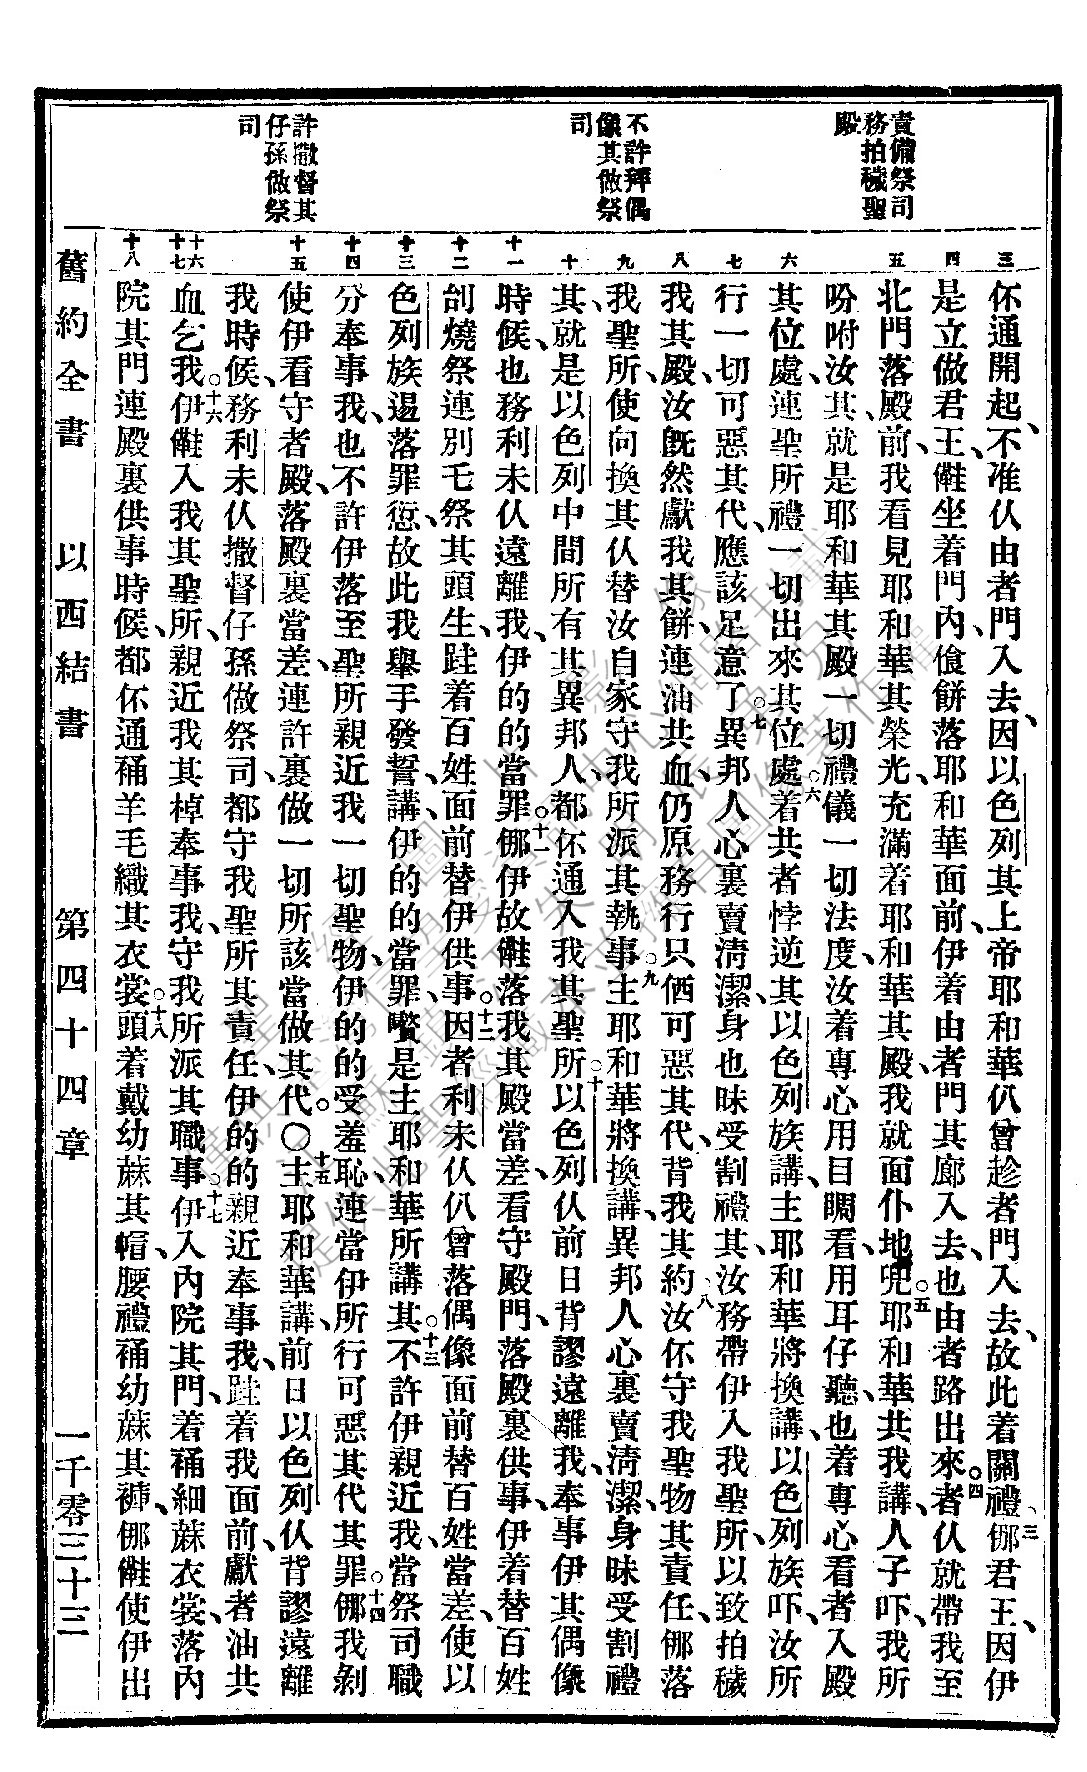 責備祭司
務拍穢聖
殿
不許拜偶
像其做祭
司
許撒督其
仔孫做祭
司
三
四
五
六
七
八
九
十
十一
十二
十三
十四
十五
十六
十七
十八
伓通開起、不准仈由者門入去、因以色列其上帝耶和華仈曾趁者門入去、故此着關禮三㑚君王、因伊
是立做君王、㑚坐着門內、飡餅落耶和華面前、伊着由者門其廊入去、也由者路出來。四者仈就帶我至
北門落殿前、我看見耶和華其榮光、充滿着耶和華其殿、我就面仆地兜。五耶和華共我講、人子吓、我所
吩咐汝其、就是耶和華其殿一切禮儀一切法度、汝着專心用目睭看、用耳仔聽、也着專心看者入殿
其位處、連聖所禮一切出來其位處。六着共者悖逆其以色列族講、主耶和華將換講、以色列族吓、汝所
行一切可惡其代、應該足意了。七異邦人心裏賣淸潔、身也昧受割禮其、汝務帶伊入我聖所、以致拍穢
我其殿、汝旣然獻我其餅、連油共血、仍原務行只倁可惡其代、背我其約、八汝伓守我聖物其責任、㑚落
我聖所、使向換其仈替汝自家守我所派其執事。九主耶和華將換講、異邦人心裏賣淸潔、身昧受割禮
其、就是以色列中間所有其異邦人、都伓通入我其聖所。十以色列仈前日背謬遠離我、奉事伊其偶像
時候、也務利未仈遠離我、伊的的當罪。十一㑚伊故㑚落我其殿當差、看守殿門、落殿裏供事、伊着替百姓
刣燒祭連別乇祭其頭生、跬着百姓面前替伊供事。十二因者利未仈仈曾落偶像面前替百姓當差、使以
色列族逿落罪愆、故此我舉手發誓、講、伊的的當罪、嚽是主耶和華所講其。十三不許伊親近我、當祭司職
分奉事我、也不許伊落至聖所親近我一切聖物、伊的的受羞恥、連當伊所行可惡其代其罪。十四㑚我剝
使伊看守者殿、落殿裏當差、連許裏做一切所該當做其代。〇十五主耶和華講、前日以色列仈背謬遠離
我時候、務利未仈撒督仔孫做祭司、都守我聖所其責任、伊的的親近奉事我、跬着我面前、獻者油共
血乞我。十六伊㑚入我其聖所、親近我其棹奉事我、守我所派其職事。十七伊入內院其門、着䘼細蔴衣裳、落內
院其門連殿裏供事時候、都伓通䘼羊毛織其衣裳。十八頭着戴幼蔴其帽、腰禮䘼幼蔴其褲、㑚㑚使伊出
舊約全書　以西結書　第四十四章　一千零三十三